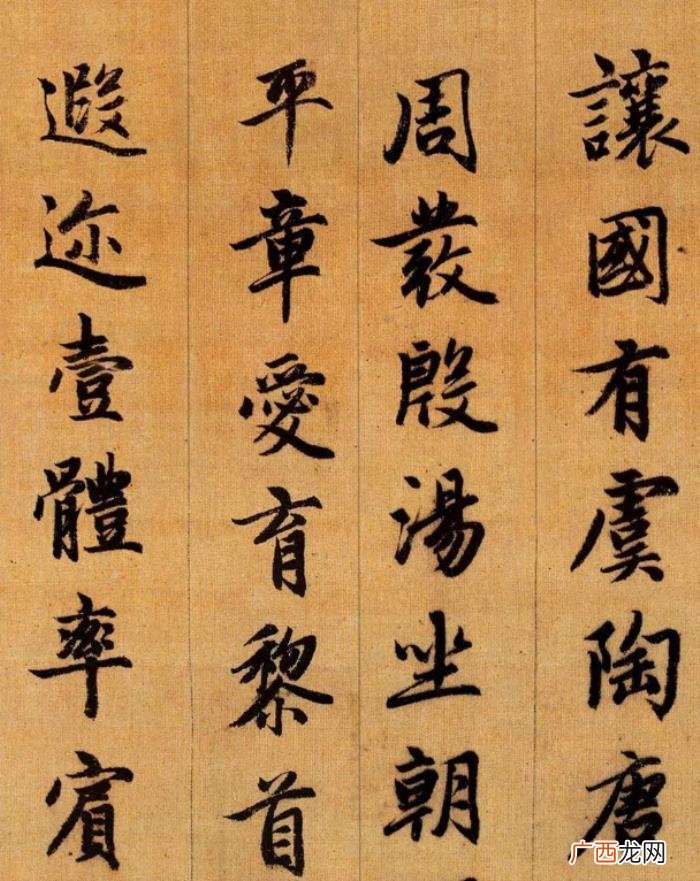 讓國有虞陶唐
周發殷湯坐朝
平章愛育黎首
遐迩壹體率賓
广西龙网